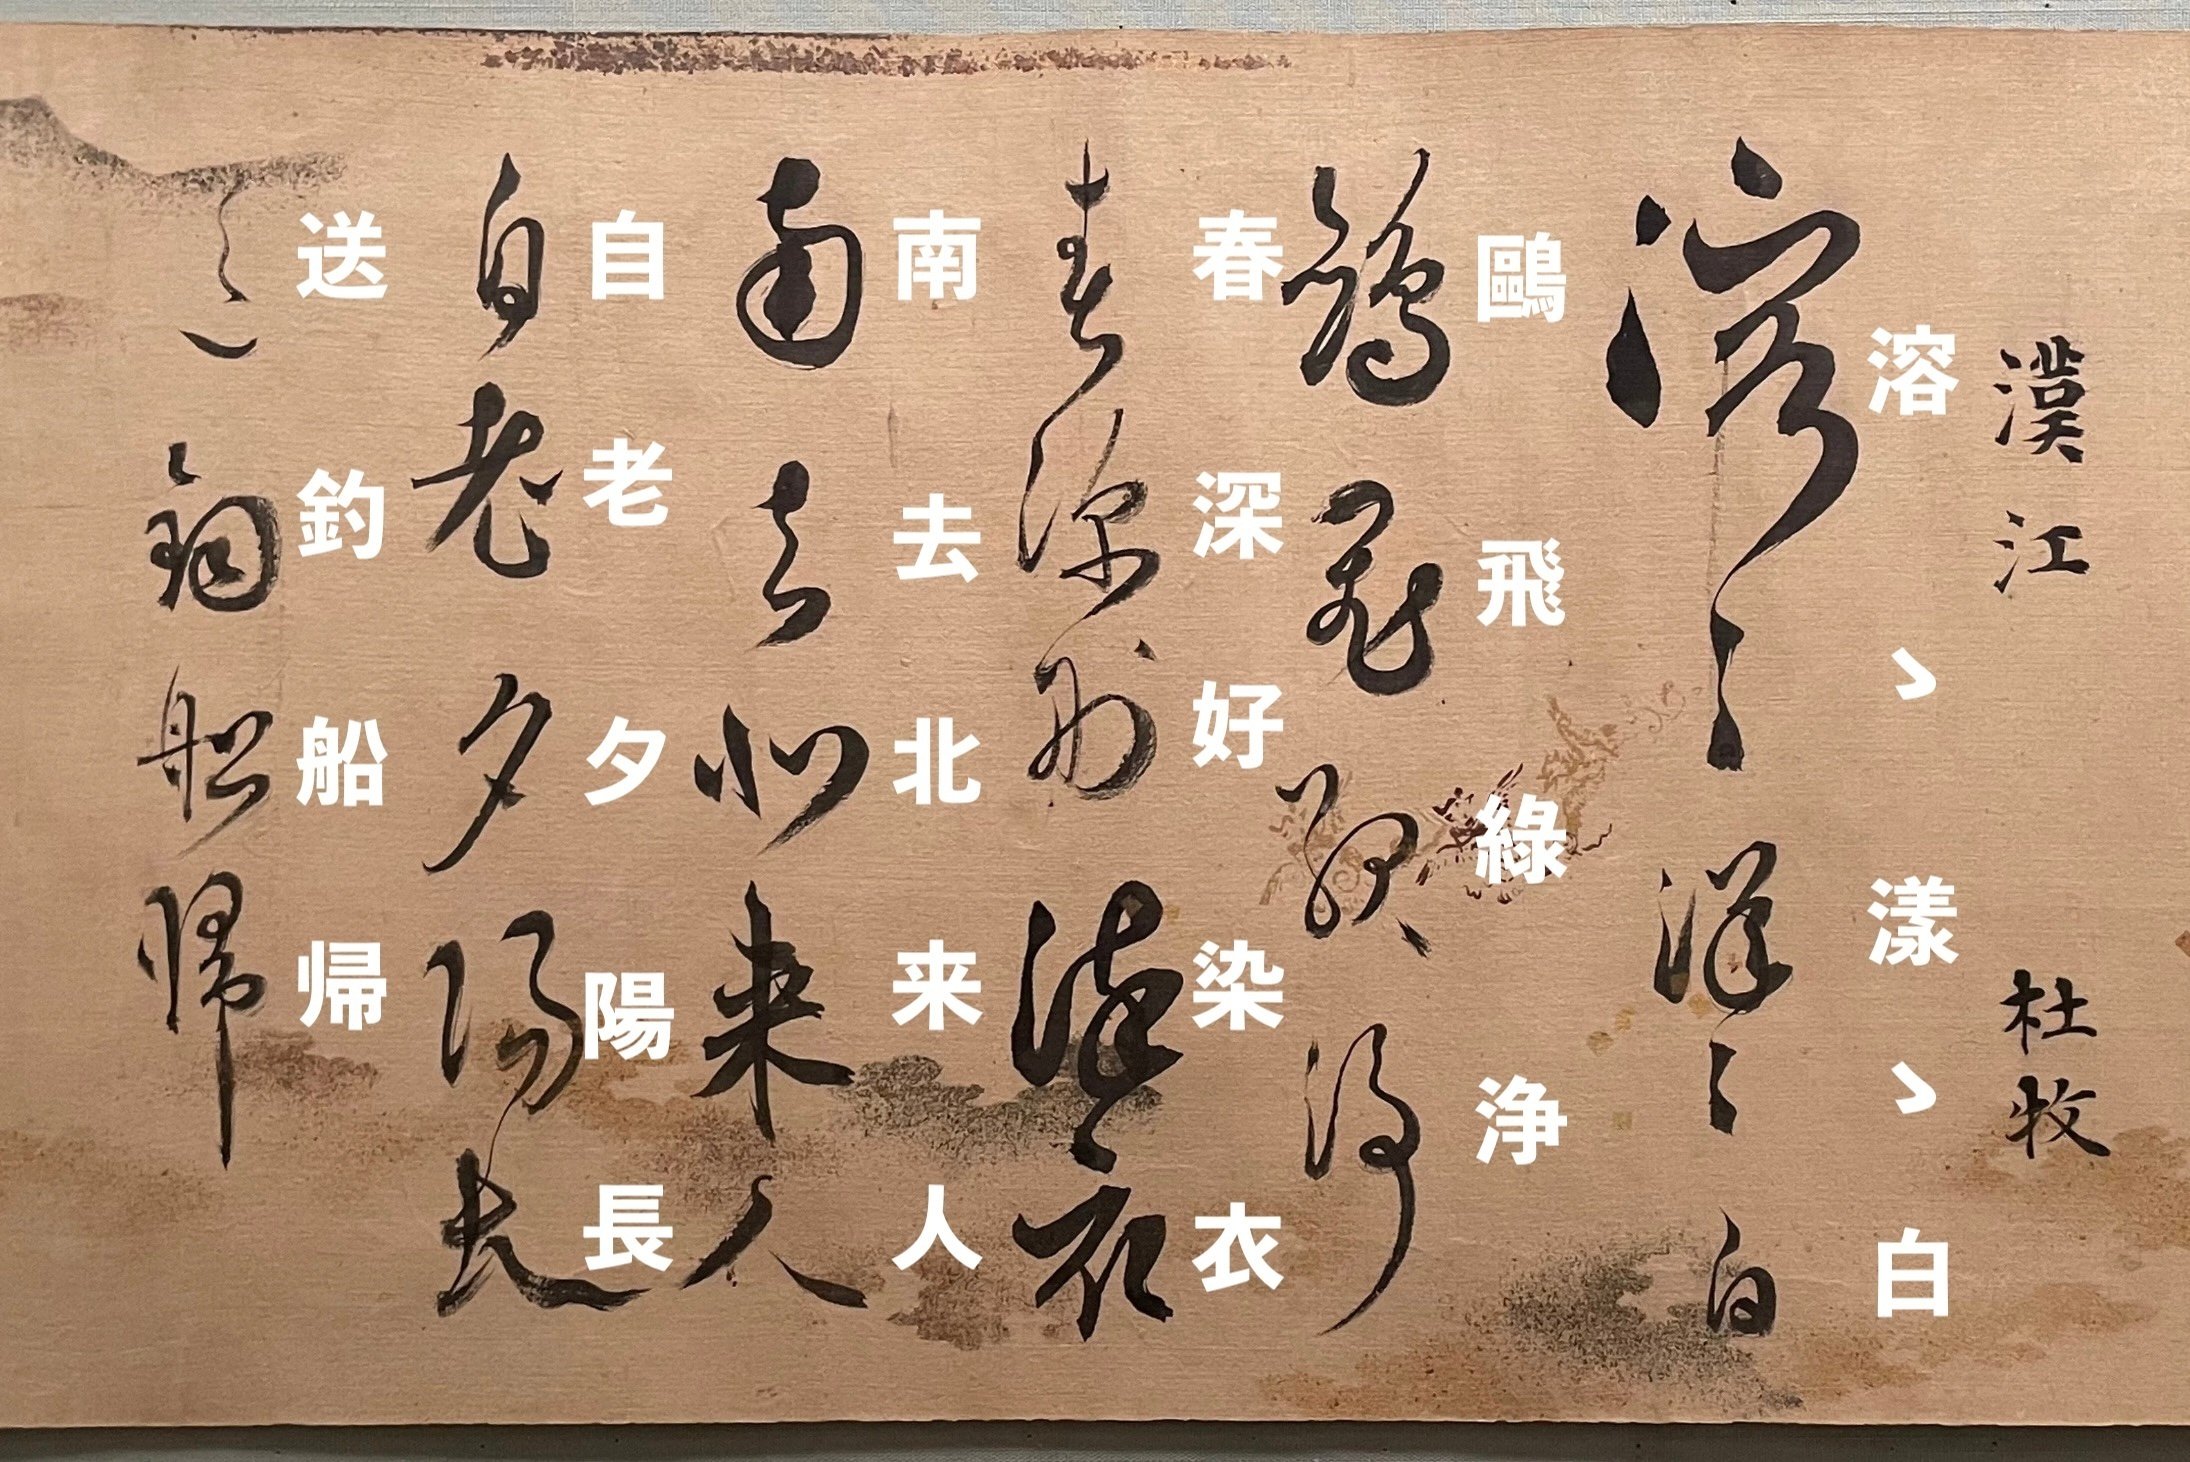 漢江 杜牧
溶ゝ漾ゝ白
鷗飛綠浄
春深好染衣
南去北来人
自老夕陽長
送釣船帰